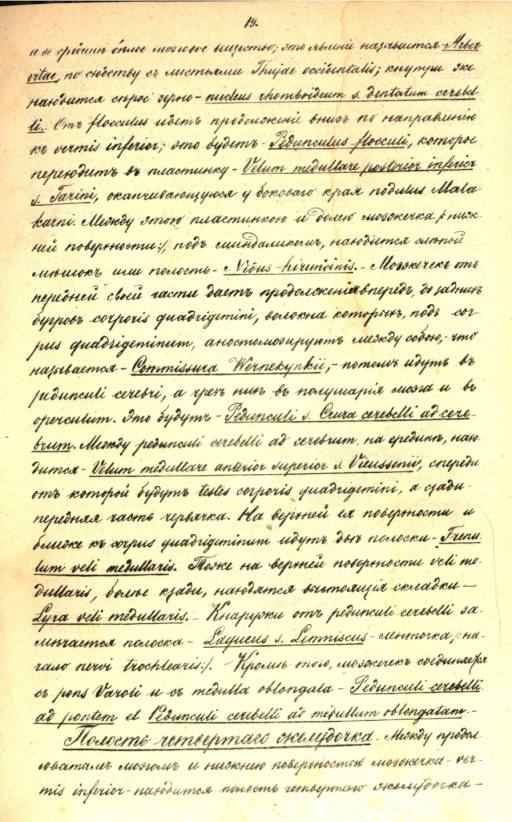 14.
и въ срединѣ бѣлое мозговое вещество; это явленіе называется Arbor
vitae, по сходству съ листьями Thujae occidentalis; кнутри же
находится сѣрое зерно - nucleus rhomboideum s. dentatum cerebel-
li. Отъ flocculus идетъ продолженіе внизъ по направленію
къ vermis inferior; это будетъ - Pedunculus flocculi, которое
переходитъ въ пластинку - Velum medullare posterior inferior
s. Tarini, оканчивающуюся у боковаго края nodulus Mala-
karni. Между этою пластинкою и долею мозжечка /: ниж-
ней поверхности :/, подъ миндаликомъ, находится слѣпой
мѣшокъ или полость - Nidus hirundinis. - Мозжечекъ отъ
передней своей части даетъ продолженія впередъ, до заднихъ
бугровъ corporis quadrigemini, волокна которыхъ, подъ cor-
pus quadrigeminum, анастомозируютъ между собою, что
называется - Commissura Wernekynkii, - потомъ идутъ въ
pedunculi cerebri, а чрезъ нихъ въ полушарія мозга и въ
operculum. Это будутъ - Pedunculi s. Crura cerebelli ad cere-
brum. Между pedunculi cerebelli ad cerebrum, на срединѣ, нахо-
дится - Velum medullare anterior superior s. Vieussenii, спереди
отъ которой будутъ testes corporis quadrigemini, а сзади
передняя часть червячка. На верхней ея поверхности и
ближе къ corpus quadrigeminum идутъ двѣ полоски - Frenu-
lum veli medullaris. Тоже на верхней поверхности veli me-
dullaris, болѣе кзади, находятся выстоящія складки -
Lyra veli medullaris. - Кнаружи отъ pedunculi cerebelli за-
мѣчается полоска - Laqueus s. Lemniscus - ленточка /: на-
чало nervi trochlearis :/. Кромѣ того, мозжечекъ соединяется
съ pons Varoli и съ medulla oblongata - Pedunculi cerebelli
ad pontem et Pedunculi cerebelli ad medullam oblongatam. -
Полость четвертаго желудочка. Между продол-
говатымъ мозгомъ и нижнею поверхностью мозжечка - ver-
mis inferior - находится полость четвертаго желудочка -